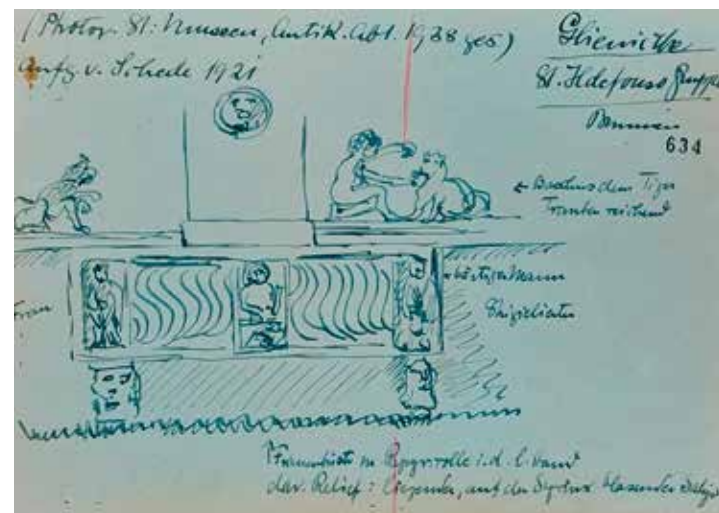 (Photogr. St. Museen, Antik. Abt. 1938 ges)
Aufg v. Schede 1921
Glienicke
St. Ildefonso Gruppe
Brunnen
634
← Bacchus dem Tiger
Trauben reichend
← bärtiger Mann
Frau
↑ Frauenbüste m. Papyrusrolle i. d. l. Hand
dar. Relief: liegender, auf der Syrinx blasender